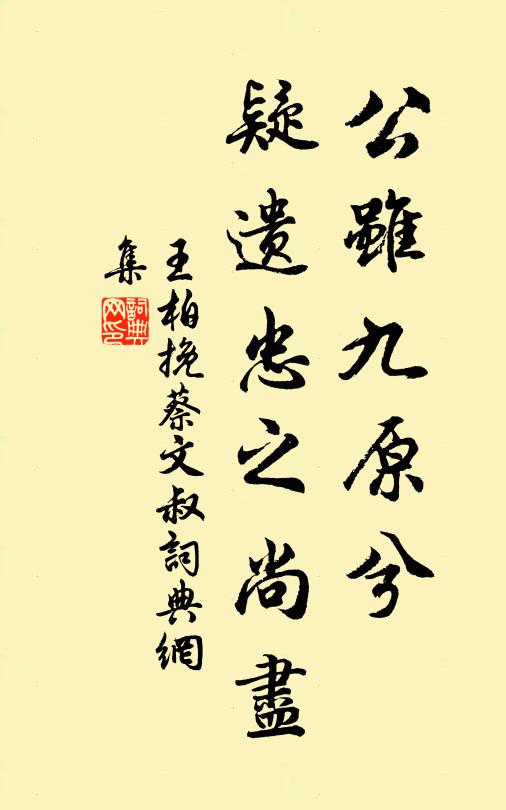 公雖九原兮
疑遺忠之尚盡
王柏挽蔡文叔詞典網
集
詞典网印